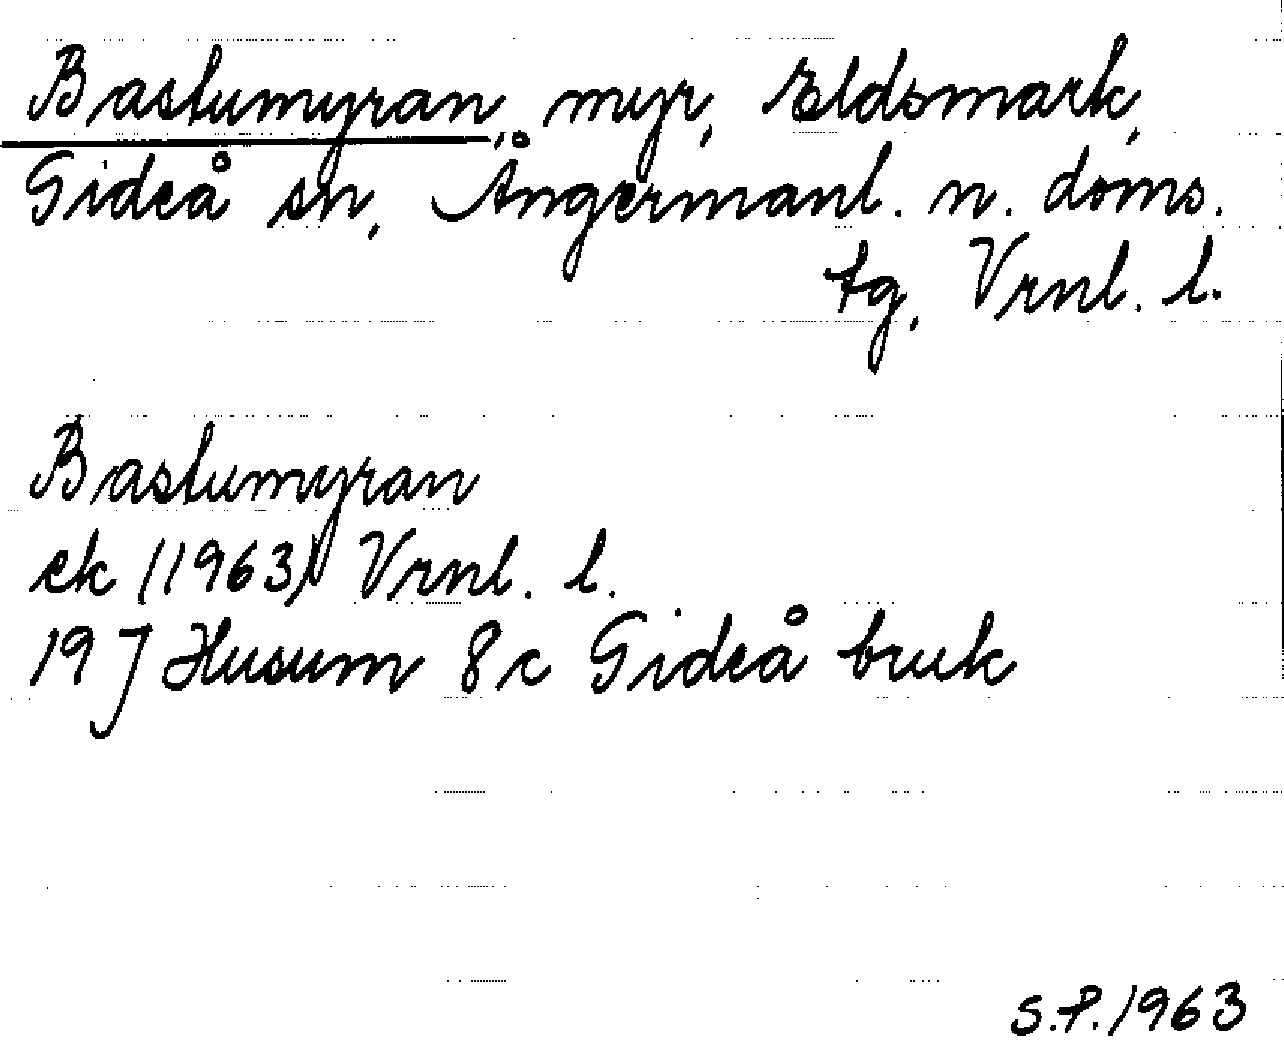 Bastumyran, myr, Eldsmark,
Gideå sn, Ångermanl. n. doms.
tg, Vrnl. l.
Bastumyran
ek (1963) Vrnl. l.
19 J Husum 8 c Gideå bruk
S.P. 1963